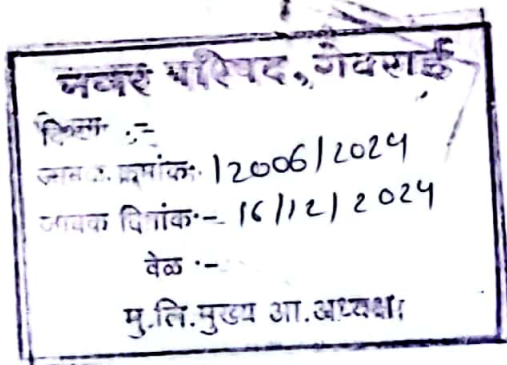 नगर परिषद, गेवराई
विभाग :-
जावक क्रमांक:- /2006/2024
जावक दिनांक:- 16/12/2024
वेळ :-
मु.लि.मुख्य आ.अध्यक्ष।